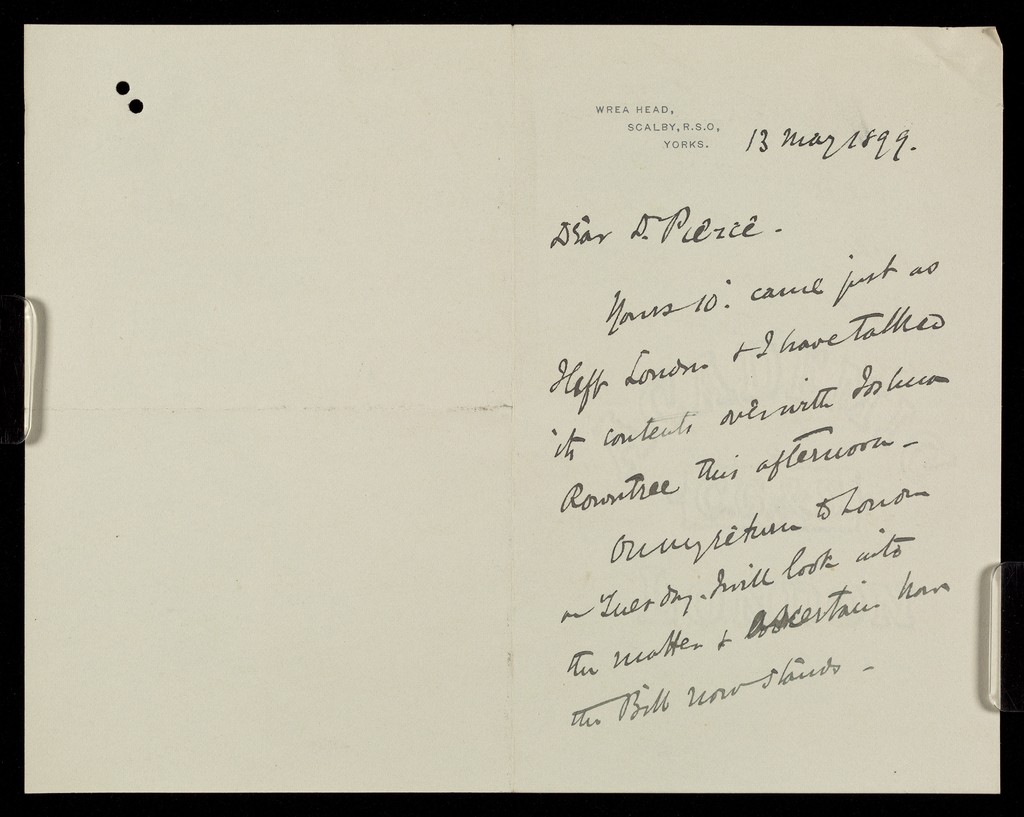 WREA HEAD,
SCALBY, R.S.O,
YORKS.
13 May 1899.
Dear Dr. Pierce -
Yours 10th. came just as
I left London & I have talked
its contents over with Joshua
Rowntree this afternoon -
On my return to London
on Tuesday. I will look into
the matter & ascertain how
the Bill now stands -